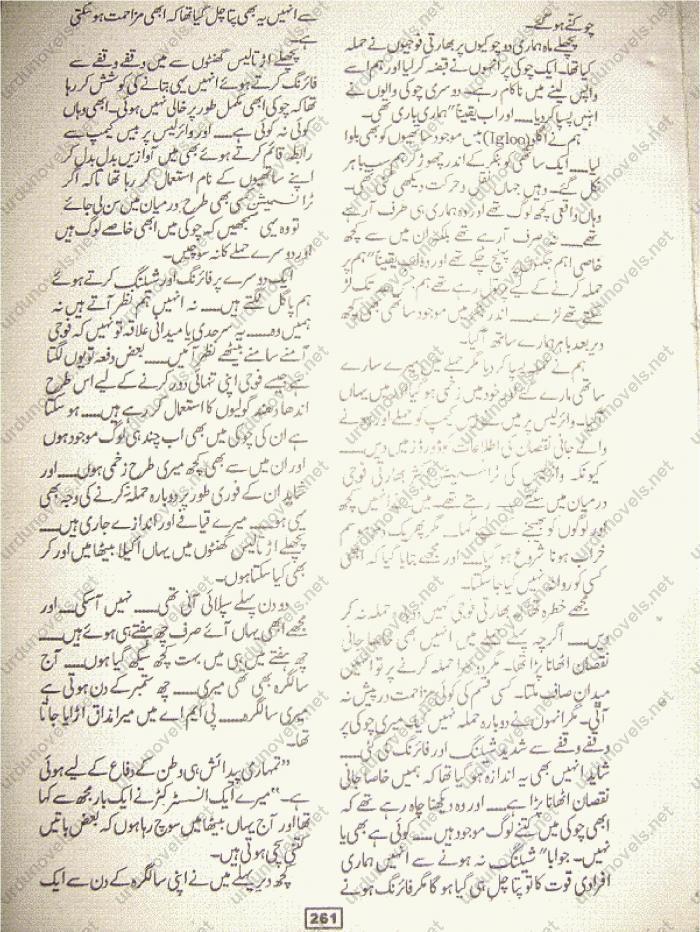 چوکنے ہو گئے۔
پچھلے ماہ ہماری دو چوکیوں پر بھارتی فوجیوں نے حملہ
کیا تھا۔ ایک چوکی پر انہوں نے قبضہ کر لیا اور ہم اسے
واپس لینے میں ناکام رہے۔ دوسری چوکی والوں نے
انہیں پسپا کر دیا ۔۔۔ اور اب یقیناً "ہماری باری تھی۔
ہم نے اگلو (Igloo) میں موجود ساتھیوں کو بھی بلوا
لیا ۔۔۔ ایک ساتھی کو بنکر کے اندر چھوڑ کر ہم سب باہر
نکل گئے۔ وہیں جہاں نقل و حرکت دیکھی گئی تھی۔
وہاں واقعی کچھ لوگ تھے اور وہ ہماری ہی طرف آ رہے
تھے ۔۔۔ نہ صرف آ رہے تھے بلکہ ان میں سے کچھ
خاصی اہم جگہوں پر پہنچ چکے تھے اور وہ اب یقیناً "ہم پر
حملہ کرنے کے لیے تیار ہو رہے تھے ہم جس حد تک لڑ
سکتے تھے لڑے ۔۔۔ اندر بنکر میں موجود ساتھی بھی کچھ
دیر بعد باہر ہمارے ساتھ آ گیا۔
ہم نے حملہ پسپا کر دیا مگر حملے میں میرے سارے
ساتھی مارے گئے اور خود میں زخمی ہو گیا اور میں یہاں
آ گیا۔ وائرلیس پر میں نے بیس کیمپ کو حملے اور ہونے
والے جانی نقصان کی اطلاعات کوڈ ورڈز میں دیں ۔۔۔
کیونکہ وائرلیس کی ٹرانسمیشن اکثر بھارتی فوجی
درمیان میں سنتے رہتے تھے۔ میں نے انہیں کچھ
اور لوگوں کو بھیجنے کے لیے کہا۔ مگر پھر یک دم موسم
خراب ہونا شروع ہو گیا ۔۔۔ اور مجھے بتایا گیا کہ ابھی
کسی کو روانہ نہیں کیا جا سکتا۔
مجھے خطرہ تھا کہ بھارتی فوجی کہیں دوبارہ حملہ نہ کر
دیں ۔۔۔ اگرچہ پہلے حملے میں انہیں بھی خاصا جانی
نقصان اٹھانا پڑا تھا۔ مگر دوبارہ حملہ کرنے پر تو انہیں
میدان صاف ملتا۔ کسی قسم کی کوئی مزاحمت درپیش نہ
آتی۔ مگر انہوں نے دوبارہ حملہ نہیں کیا۔ میری چوکی پر
وقفے وقفے سے شدید شیلنگ اور فائرنگ کی گئی ۔۔۔
شاید انہیں بھی یہ اندازہ ہو گیا تھا کہ ہمیں خاصا جانی
نقصان اٹھانا پڑا ہے ۔۔۔ اور وہ دیکھنا چاہ رہے تھے کہ
ابھی چوکی میں کتنے لوگ موجود ہیں ۔۔۔ کوئی ہے بھی یا
نہیں۔ جواباً" شیلنگ نہ ہونے سے انہیں ہماری
افرادی قوت کا تو پتا چل ہی گیا ہو گا مگر فائرنگ ہونے
سے انہیں یہ بھی پتا چل گیا تھا کہ ابھی مزاحمت ہو سکتی
ہے۔
پچھلے اڑتالیس گھنٹوں سے میں وقفے وقفے سے
فائرنگ کرتے ہوئے انہیں یہی بتانے کی کوشش کر رہا
تھا کہ چوکی ابھی مکمل طور پر خالی نہیں ہوئی۔ ابھی وہاں
کوئی نہ کوئی ہے ۔۔۔ اور وائرلیس پر بیس کیمپ سے
رابطہ قائم کرتے ہوئے بھی میں آوازیں بدل بدل کر
اپنے ساتھیوں کے نام استعمال کر رہا تھا تاکہ اگر
ٹرانسمیشن کسی بھی طرح درمیان میں سن لی جائے
تو وہ یہی سمجھیں کہ چوکی میں ابھی خاصے لوگ ہیں
اور دوسرے حملے کا نہ سوچیں۔
ایک دوسرے پر فائرنگ اور شیلنگ کرتے ہوئے
ہم پاگل لگتے ہیں ۔۔۔ نہ انہیں ہم نظر آتے ہیں نہ
ہمیں وہ ۔۔۔ یہ سرحدی یا میدانی علاقہ تو نہیں کہ فوجی
آمنے سامنے بیٹھے نظر آئیں ۔۔۔ بعض دفعہ تو یوں لگتا
ہے جیسے فوجی اپنی تنہائی دور کرنے کے لیے اس طرح
اندھا دھند گولیوں کا استعمال کر رہے ہیں ۔۔۔ ہو سکتا
ہے ان کی چوکی میں بھی اب چند ہی لوگ موجود ہوں
اور ان میں سے بھی کچھ میری طرح زخمی ہوں ۔۔۔ اور
شاید ان کے فوری طور پر دوبارہ حملہ نہ کرنے کی وجہ بھی
یہی ہو ۔۔۔ میرے قیافے اور اندازے جاری ہیں ۔۔۔
پچھلے اڑتالیس گھنٹوں میں یہاں اکیلا بیٹھا میں اور کر
بھی کیا سکتا ہوں۔
دو دن پہلے سپلائی آنی تھی ۔۔۔ نہیں آ سکی ۔۔۔ اور
مجھے ابھی یہاں آئے صرف چھ ہفتے ہی ہوئے ہیں ۔۔۔
چھ ہفتے میں ہی میں بہت کچھ سیکھ گیا ہوں ۔۔۔ آج
سالگرہ بھی تھی میری ۔۔۔ چھ ستمبر کے دن ہوتی ہے
میری سالگرہ ۔۔۔ پی ایم اے میں میرا مذاق اڑایا جاتا
تھا۔
"تمہاری پیدائش ہی وطن کے دفاع کے لیے ہوئی
ہے۔" میرے ایک انسٹرکٹر نے ایک بار مجھ سے کہا
تھا اور آج یہاں بیٹھا میں سوچ رہا ہوں کہ بعض باتیں
کتنی سچی ہوتی ہیں۔
کچھ دیر پہلے میں نے اپنی سالگرہ کے دن سے ایک
261
urdunovels.net